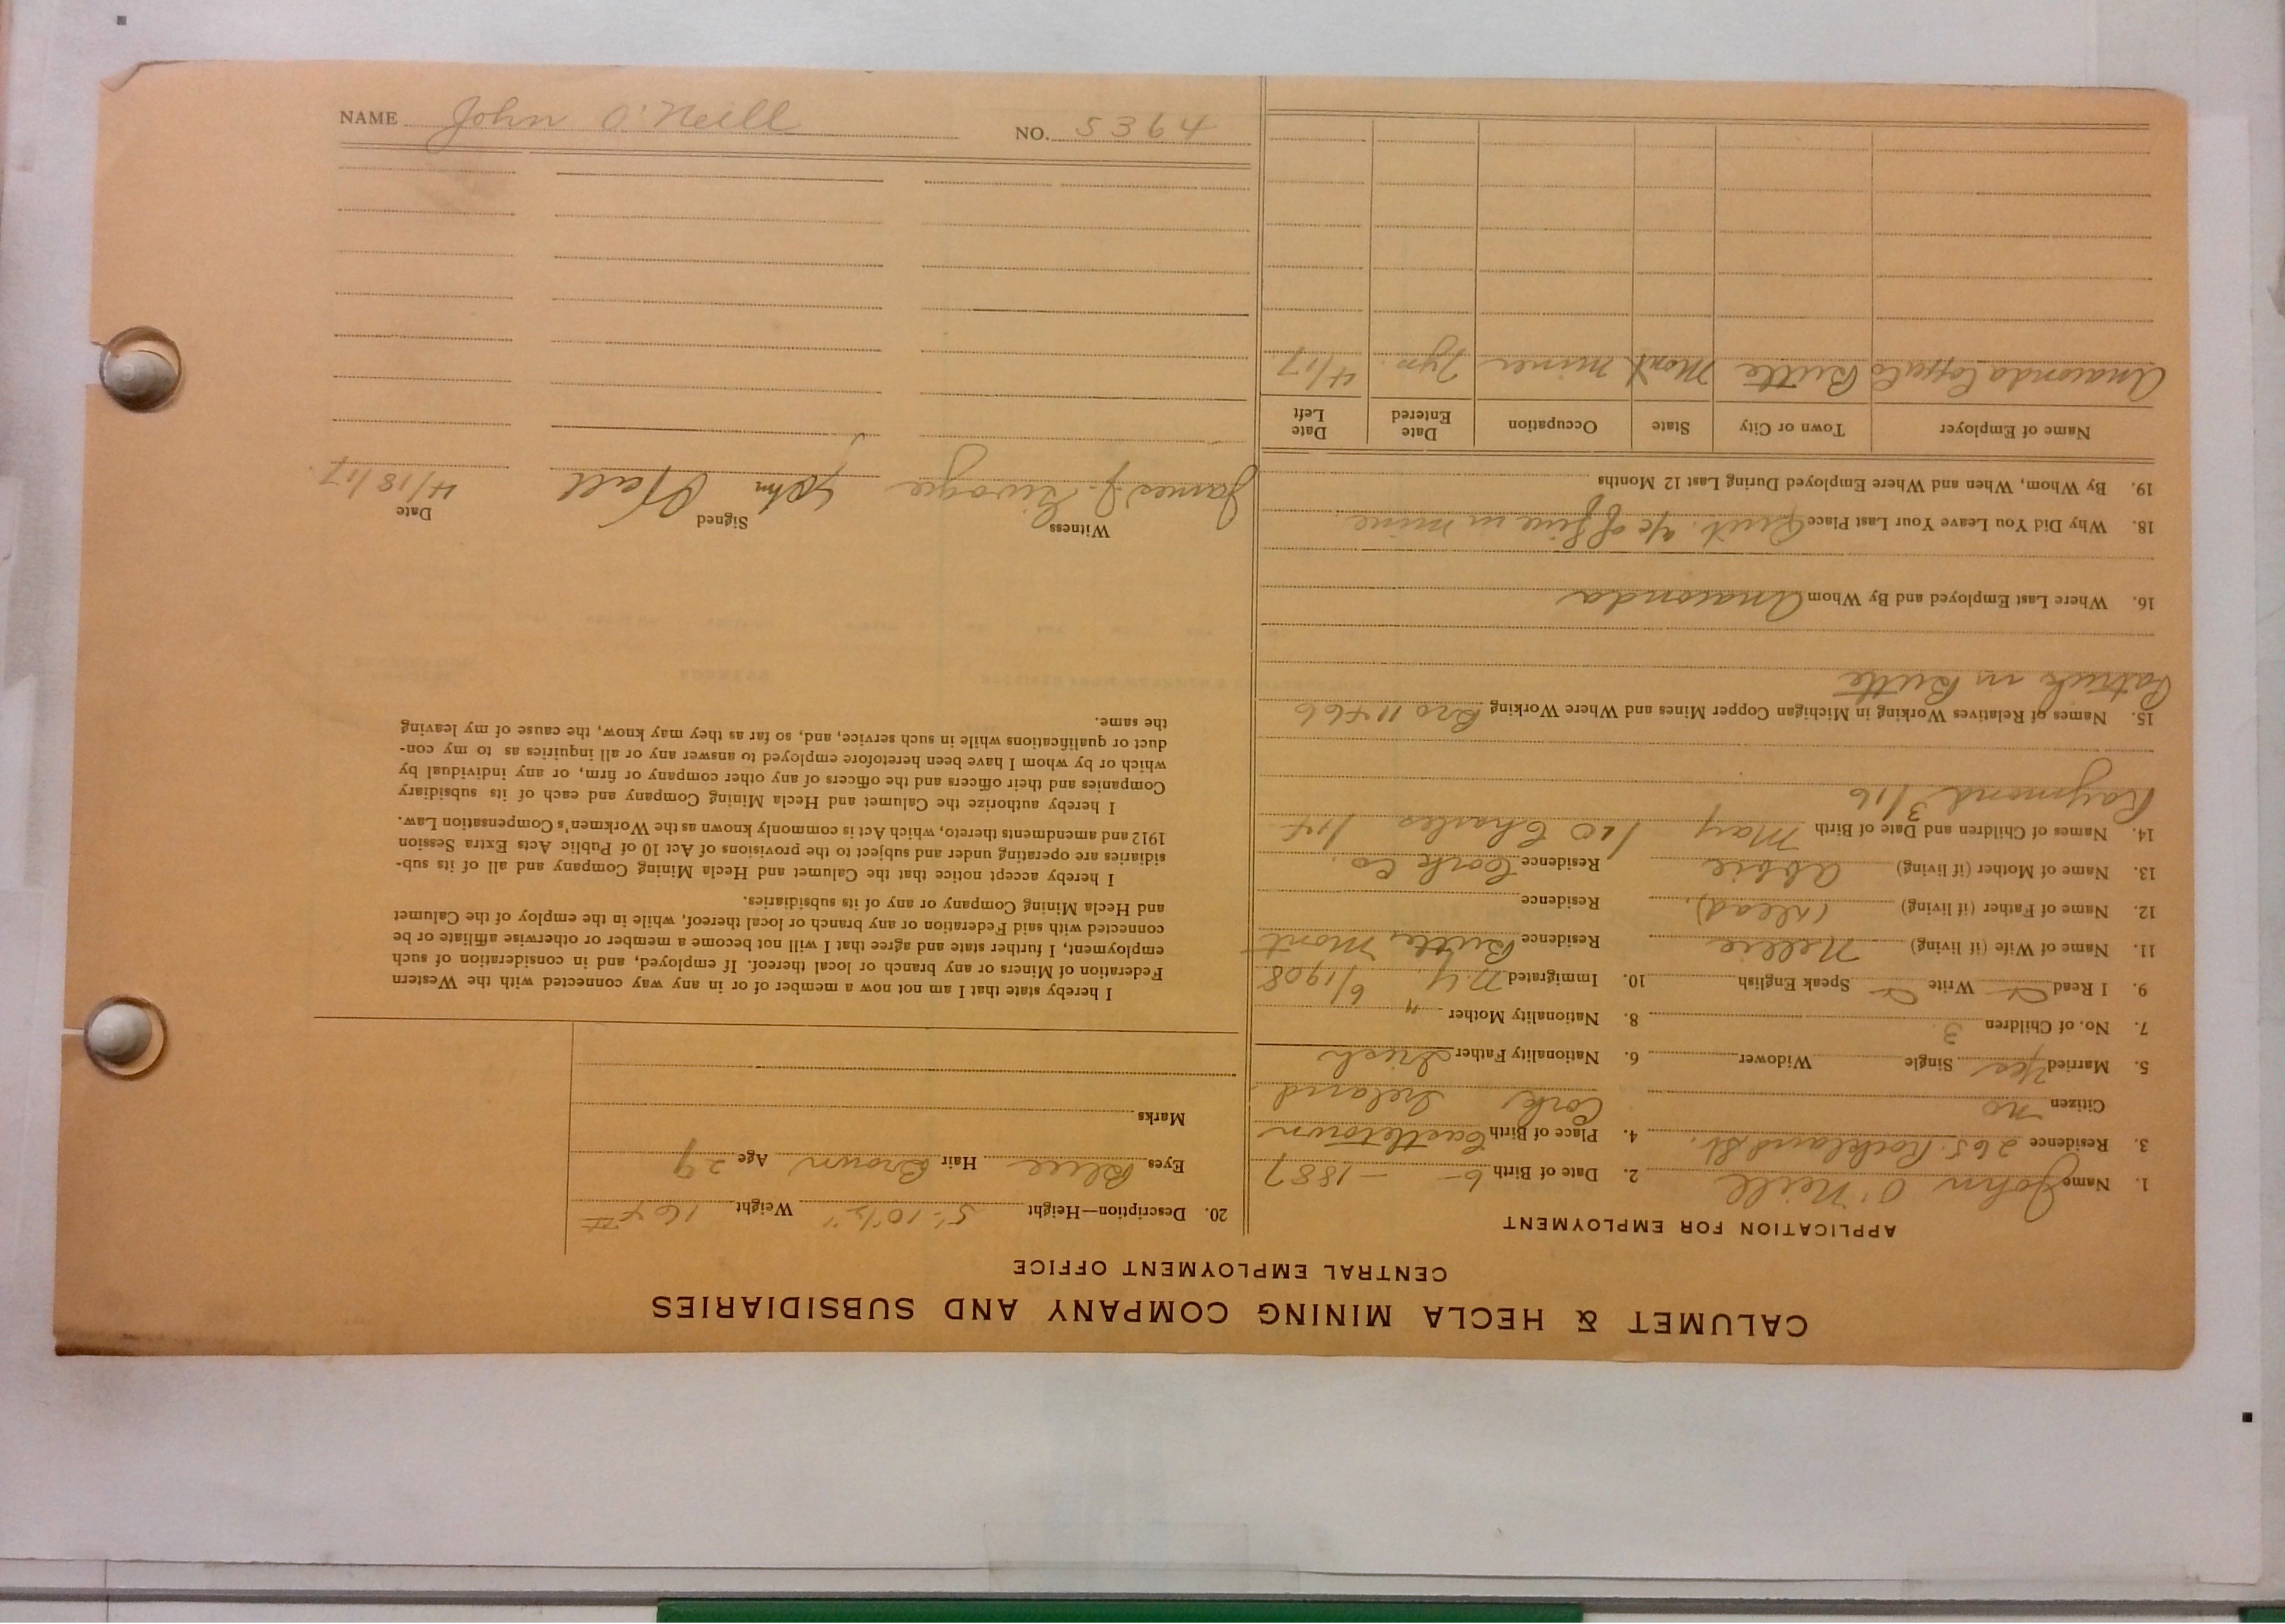 NAME John O'Neill NO. 5364
CALUMET & HECLA MINING COMPANY AND SUBSIDIARIES
CENTRAL EMPLOYMENT OFFICE
APPLICATION FOR EMPLOYMENT
1. Name John O'Neill 2. Date of Birth 6 - - 1887
3. Residence 265 Rockland St. 4. Place of Birth Castletown
Citizen no Cork Ireland
5. Married Yes Single Widower 6. Nationality Father Irish
7. No. of Children 3 8. Nationality Mother "
9. I Read Write Speak English 10. Immigrated N.Y. 6/1908
11. Name of Wife (if living) Nellie Residence Butte Mont
12. Name of Father (if living) (dead) Residence
13. Name of Mother (if living) Abbie Residence Cork Co.
14. Names of Children and Date of Birth May 1/10 Charles 1/14
Raymond 3/16
15. Names of Relatives Working in Michigan Copper Mines and Where Working Bro 11466
Patrick in Butte
16. Where Last Employed and By Whom Anaconda
18. Why Did You Leave Your Last Place Quit. a/c of fire in mine.
19. By Whom, When and Where Employed During Last 12 Months
Name of Employer Town or City State Occupation Date Entered Date Left
Anaconda Copper Co Butte Mont miner 7yrs. 4/17
20. Description—Height 5'-10½" Weight 164#
Eyes Blue Hair Brown Age 29
Marks
I hereby state that I am not now a member of or in any way connected with the Western
Federation of Miners or any branch or local thereof. If employed, and in consideration of such
employment, I further state and agree that I will not become a member or otherwise affiliate or be
connected with said Federation or any branch or local thereof, while in the employ of the Calumet
and Hecla Mining Company or any of its subsidiaries.
I hereby accept notice that the Calumet and Hecla Mining Company and all of its sub-
sidiaries are operating under and subject to the provisions of Act 10 of Public Acts Extra Session
1912 and amendments thereto, which Act is commonly known as the Workmen's Compensation Law.
I hereby authorize the Calumet and Hecla Mining Company and each of its subsidiary
Companies and their officers and the officers of any other company or firm, or any individual by
which or by whom I have been heretofore employed to answer any or all inquiries as to my con-
duct or qualifications while in such service, and, so far as they may know, the cause of my leaving
the same.
Witness Signed Date
James J. John 4/18/17